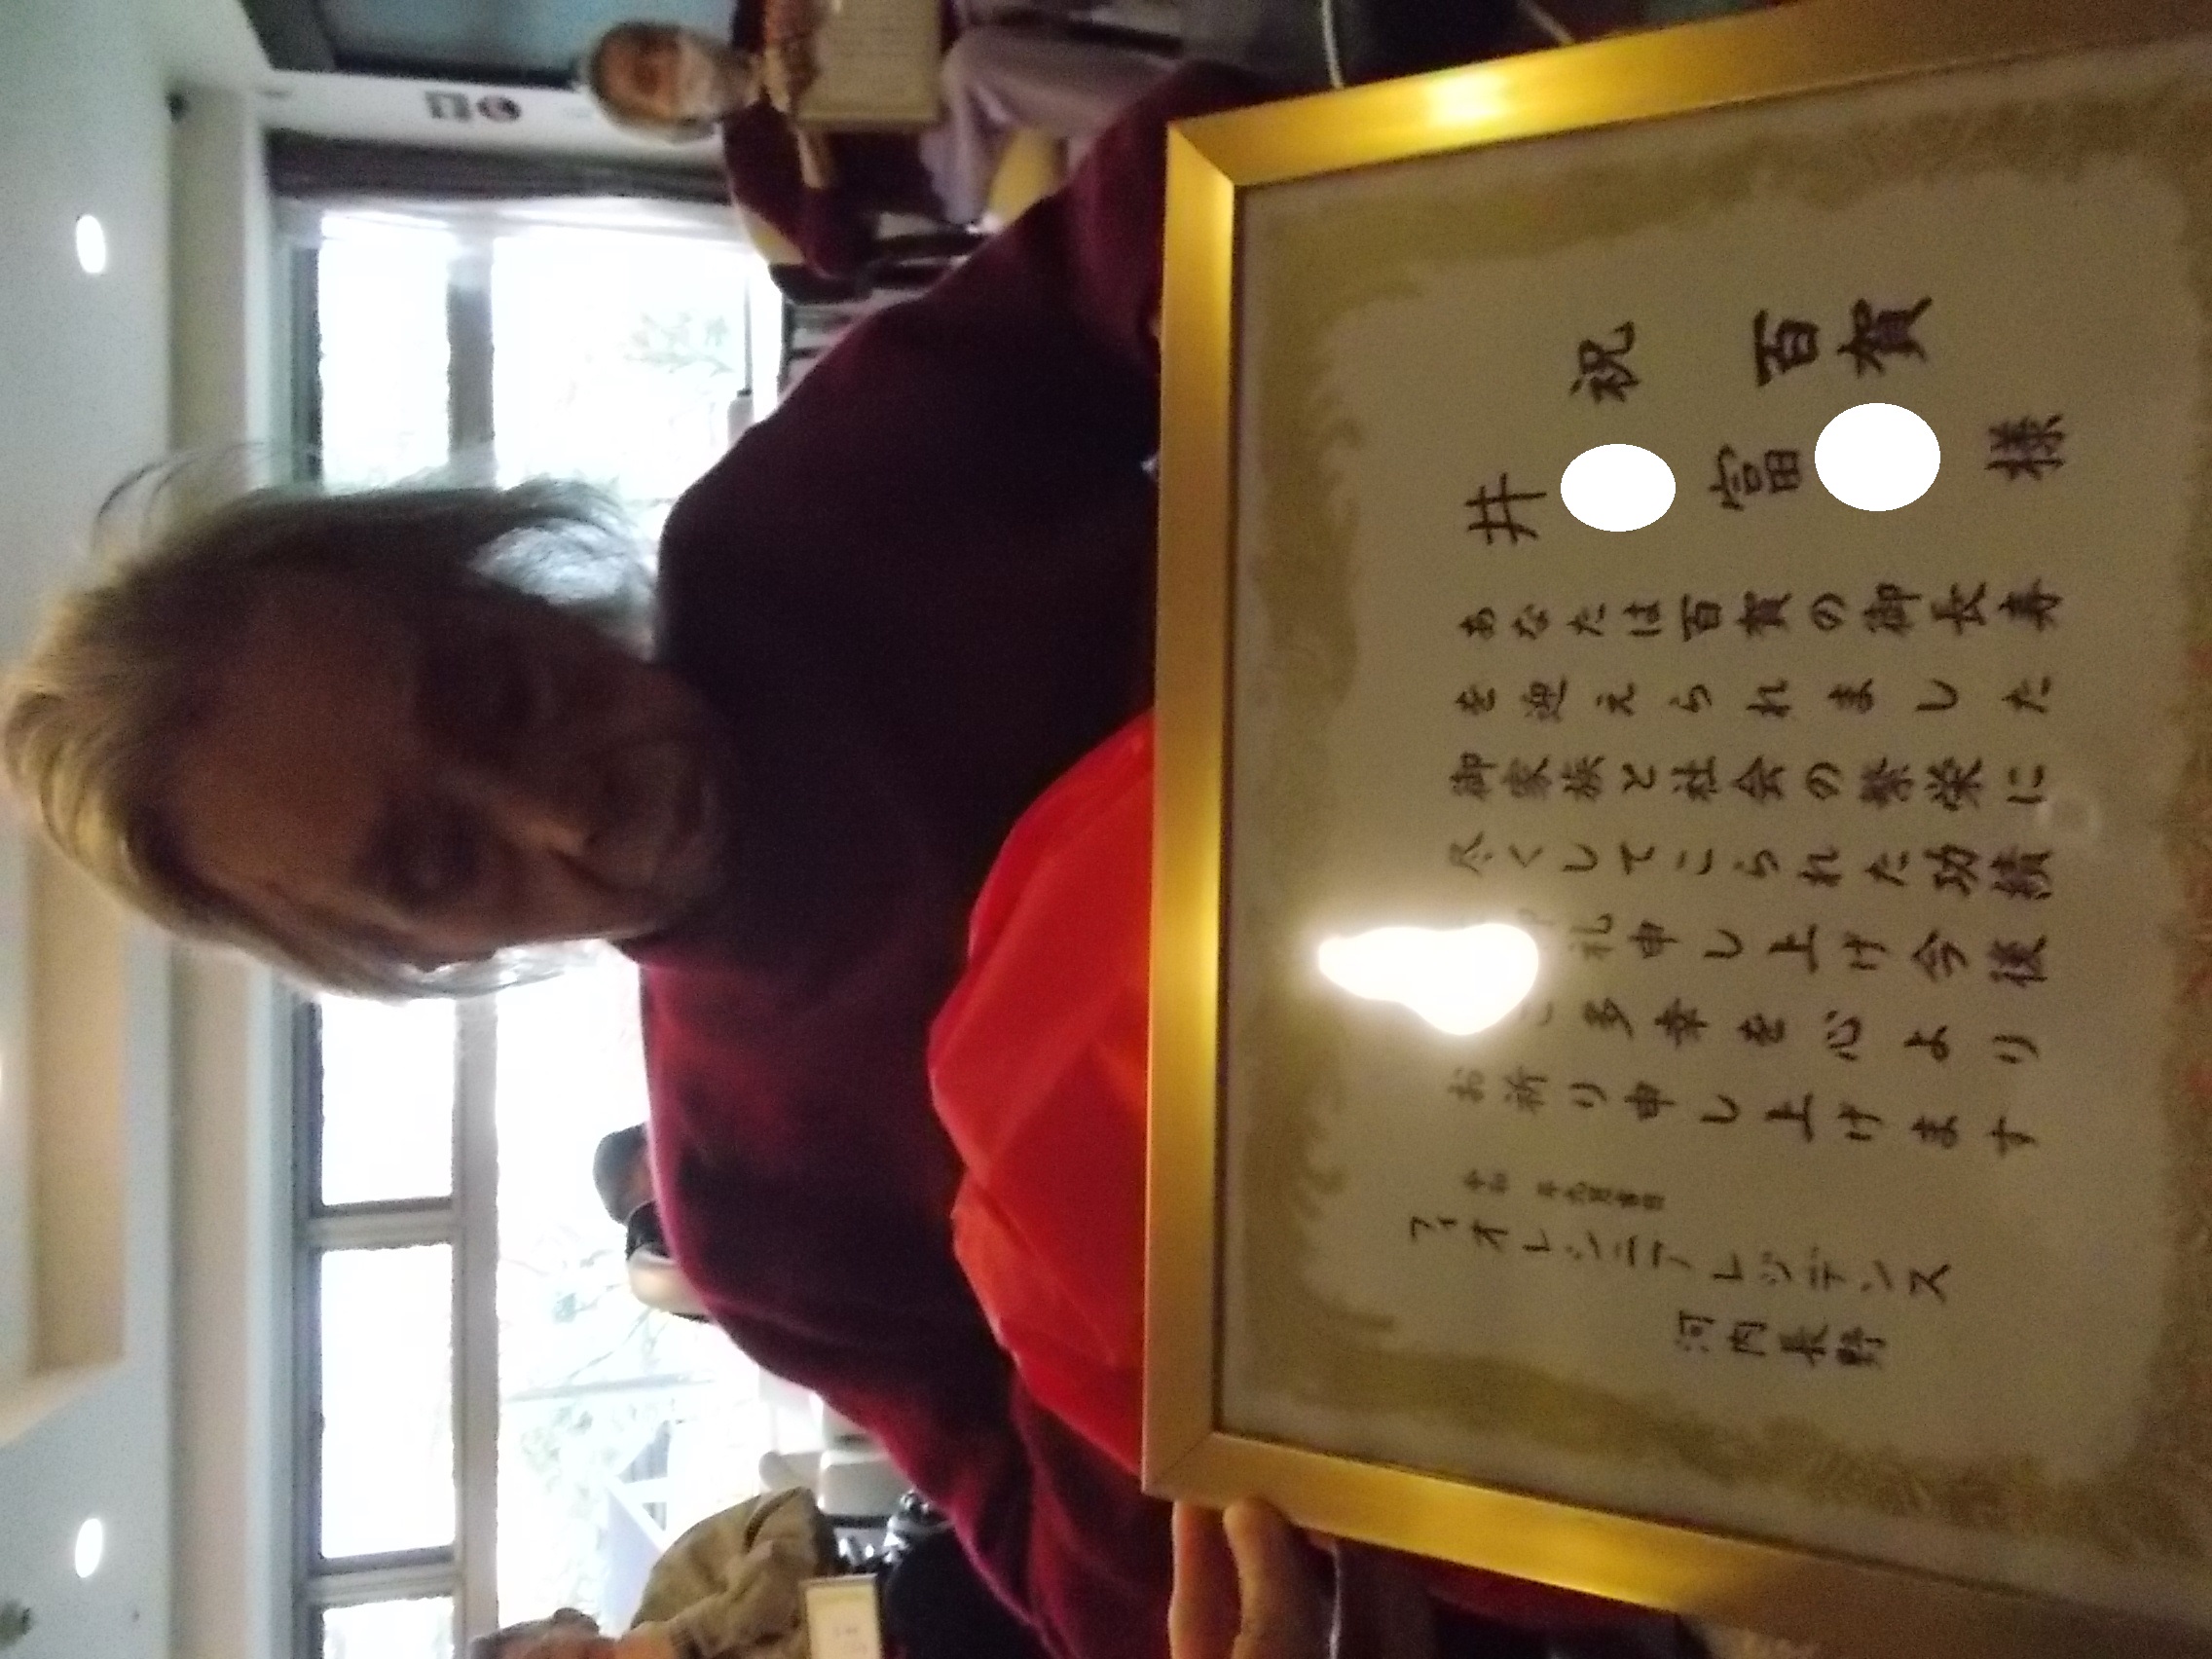 祝 百賀
井 富 様
あなたは百賀の御長寿
を迎えられました
御家族と社会の繁栄に
尽くしてこられた功績
礼申し上げ今後
ご多幸を心より
お祈り申し上げます
令和 年九月吉日
フィオレシニアレジデンス
河内長野